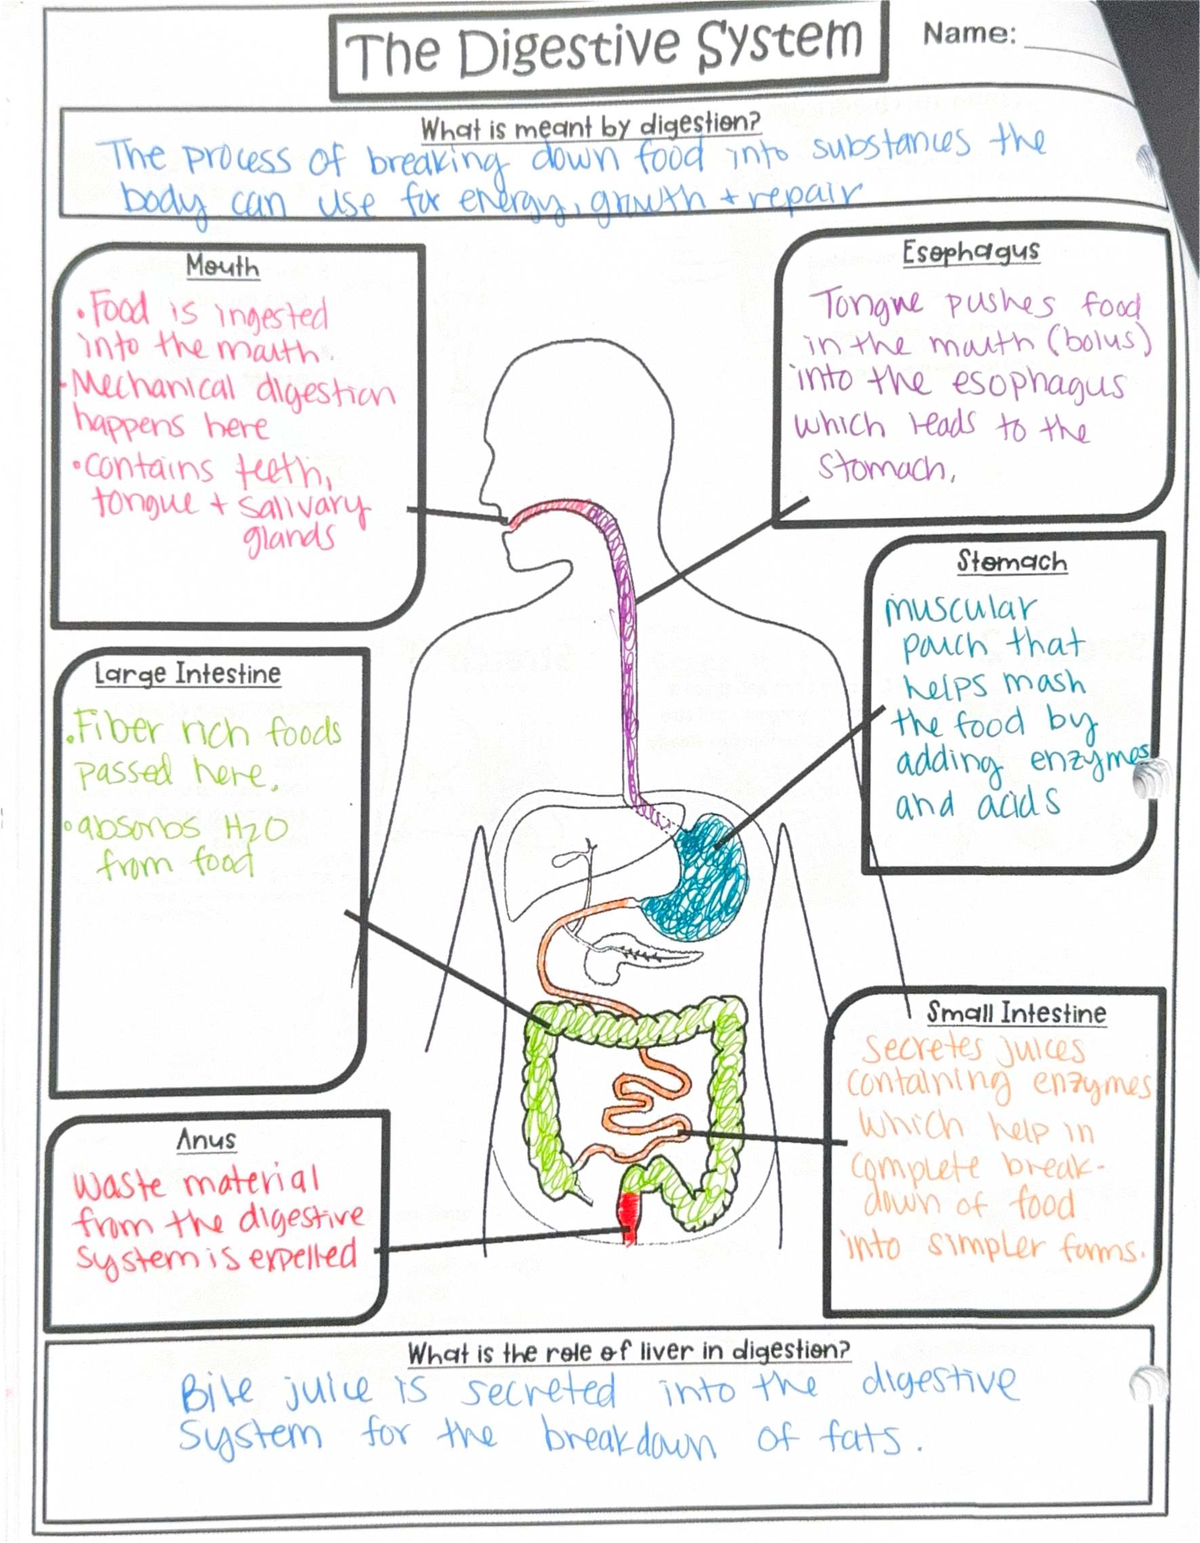 The Digestive System
Name:
What is meant by digestion?
The process of breaking down food into substances the
body can use for energy, growth + repair
Mouth
• Food is ingested
into the mouth.
• Mechanical digestion
happens here
• contains teeth,
tongue + salivary
glands
Esophagus
Tongue pushes food
in the mouth (bolus)
into the esophagus
which leads to the
stomach.
Stomach
muscular
pouch that
helps mash
the food by
adding enzymes
and acids
Large Intestine
• Fiber rich foods
passed here.
• absorbs H2O
from food
Small Intestine
Secretes juices
containing enzymes
which help in
complete break-
down of food
into simpler forms.
Anus
Waste material
from the digestive
system is expelled
What is the role of liver in digestion?
Bile juice is secreted into the digestive
system for the breakdown of fats.